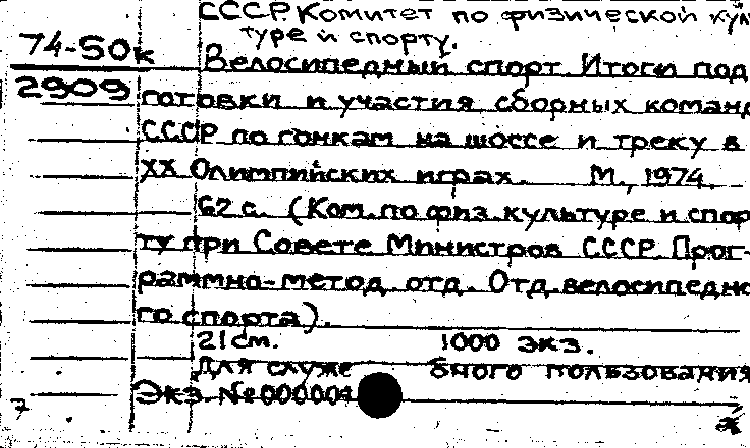 СССР. Комитет по физической куль
туре и спорту.
74-50к
2909
Велосипедный спорт. Итоги под
готовки и участия сборных команд
СССР по гонкам на шоссе и треку в
XX Олимпийских играх. М., 1974.
62 с. (Ком. по физ. культуре и спор
ту при Совете Министров СССР. Прог-
раммно-метод. отд. Отд. велосипедно
го спорта).
21 см. 1000 экз.
Для служебного пользования
Экз. №000004
7